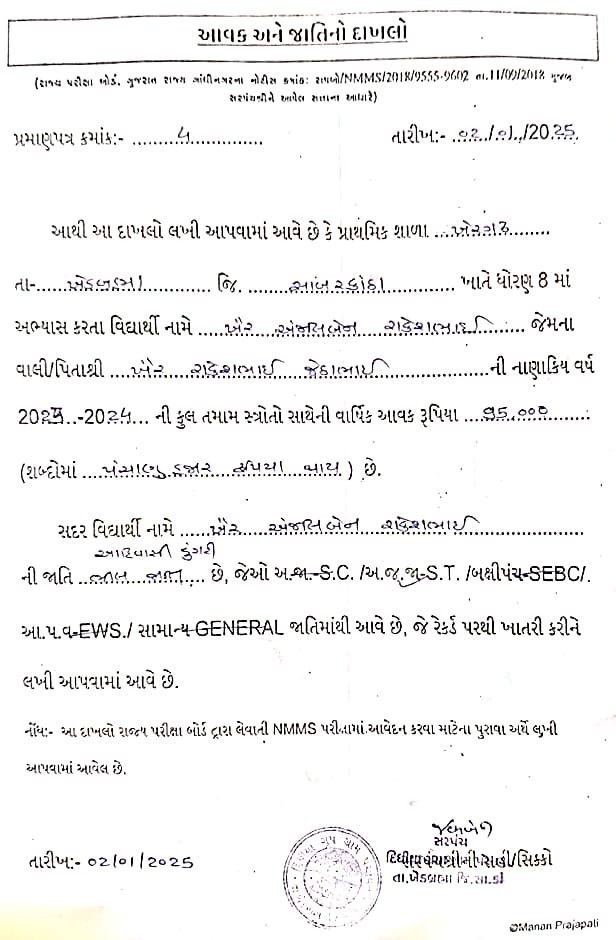 આવક અને જાતિનો દાખલો
(રાજ્ય પરીક્ષા બોર્ડ, ગુજરાત રાજ્ય ગાંધીનગરના નોટીસ ક્રમાંક: રાપબો/NMMS/2018/9555-9602 તા.11/09/2018 મુજબ
સરપંચશ્રીને આપેલ સત્તાના આધારે)
પ્રમાણપત્ર ક્રમાંક:- ........૫..............
તારીખ:- .02./.01./2025
આથી આ દાખલો લખી આપવામાં આવે છે કે પ્રાથમિક શાળા ...ખેરગઢ........
તા-.....ખેડબ્રહ્મા............ જિ. .......સાબરકાંઠા............. ખાતે ધોરણ 8 માં
અભ્યાસ કરતા વિદ્યાર્થી નામે .....ખૈર અંજલિબેન રાકેશભાઈ....... જેમના
વાલી/પિતાશ્રી ...ખૈર રાકેશભાઈ જેઠાભાઈ..................ની નાણાકિય વર્ષ
2023..-2024... ની કુલ તમામ સ્ત્રોતો સાથેની વાર્ષિક આવક રૂપિયા ....95,000..........
(શબ્દોમાં ....પંચાણુ હજાર રૂપિયા .....) છે.
સદર વિદ્યાર્થી નામે ......ખૈર અંજલિબેન રાકેશભાઈ.....................
આદિવાસી ડુંગરી
ની જાતિ ..ભીલ જાતિ.... છે, જેઓ અ.જા.-S.C. /અ.જ.જા-S.T. /બક્ષીપંચ-SEBC/.
આ.પ.વ-EWS./ સામાન્ય-GENERAL જાતિમાંથી આવે છે, જે રેકર્ડ પરથી ખાતરી કરીને
લખી આપવામાં આવે છે.
નોંધ:- આ દાખલો રાજ્ય પરીક્ષા બોર્ડ દ્વારા લેવાતી NMMS પરીક્ષામાં આવેદન કરવા માટેના પુરાવા અર્થે લખી
આપવામાં આવેલ છે.
સરપંચ
તારીખ:- 02/01/2025
સહી/સિક્કો
તા.ખેડબ્રહ્મા જિ.સા.કાં
©Manan Prajapati